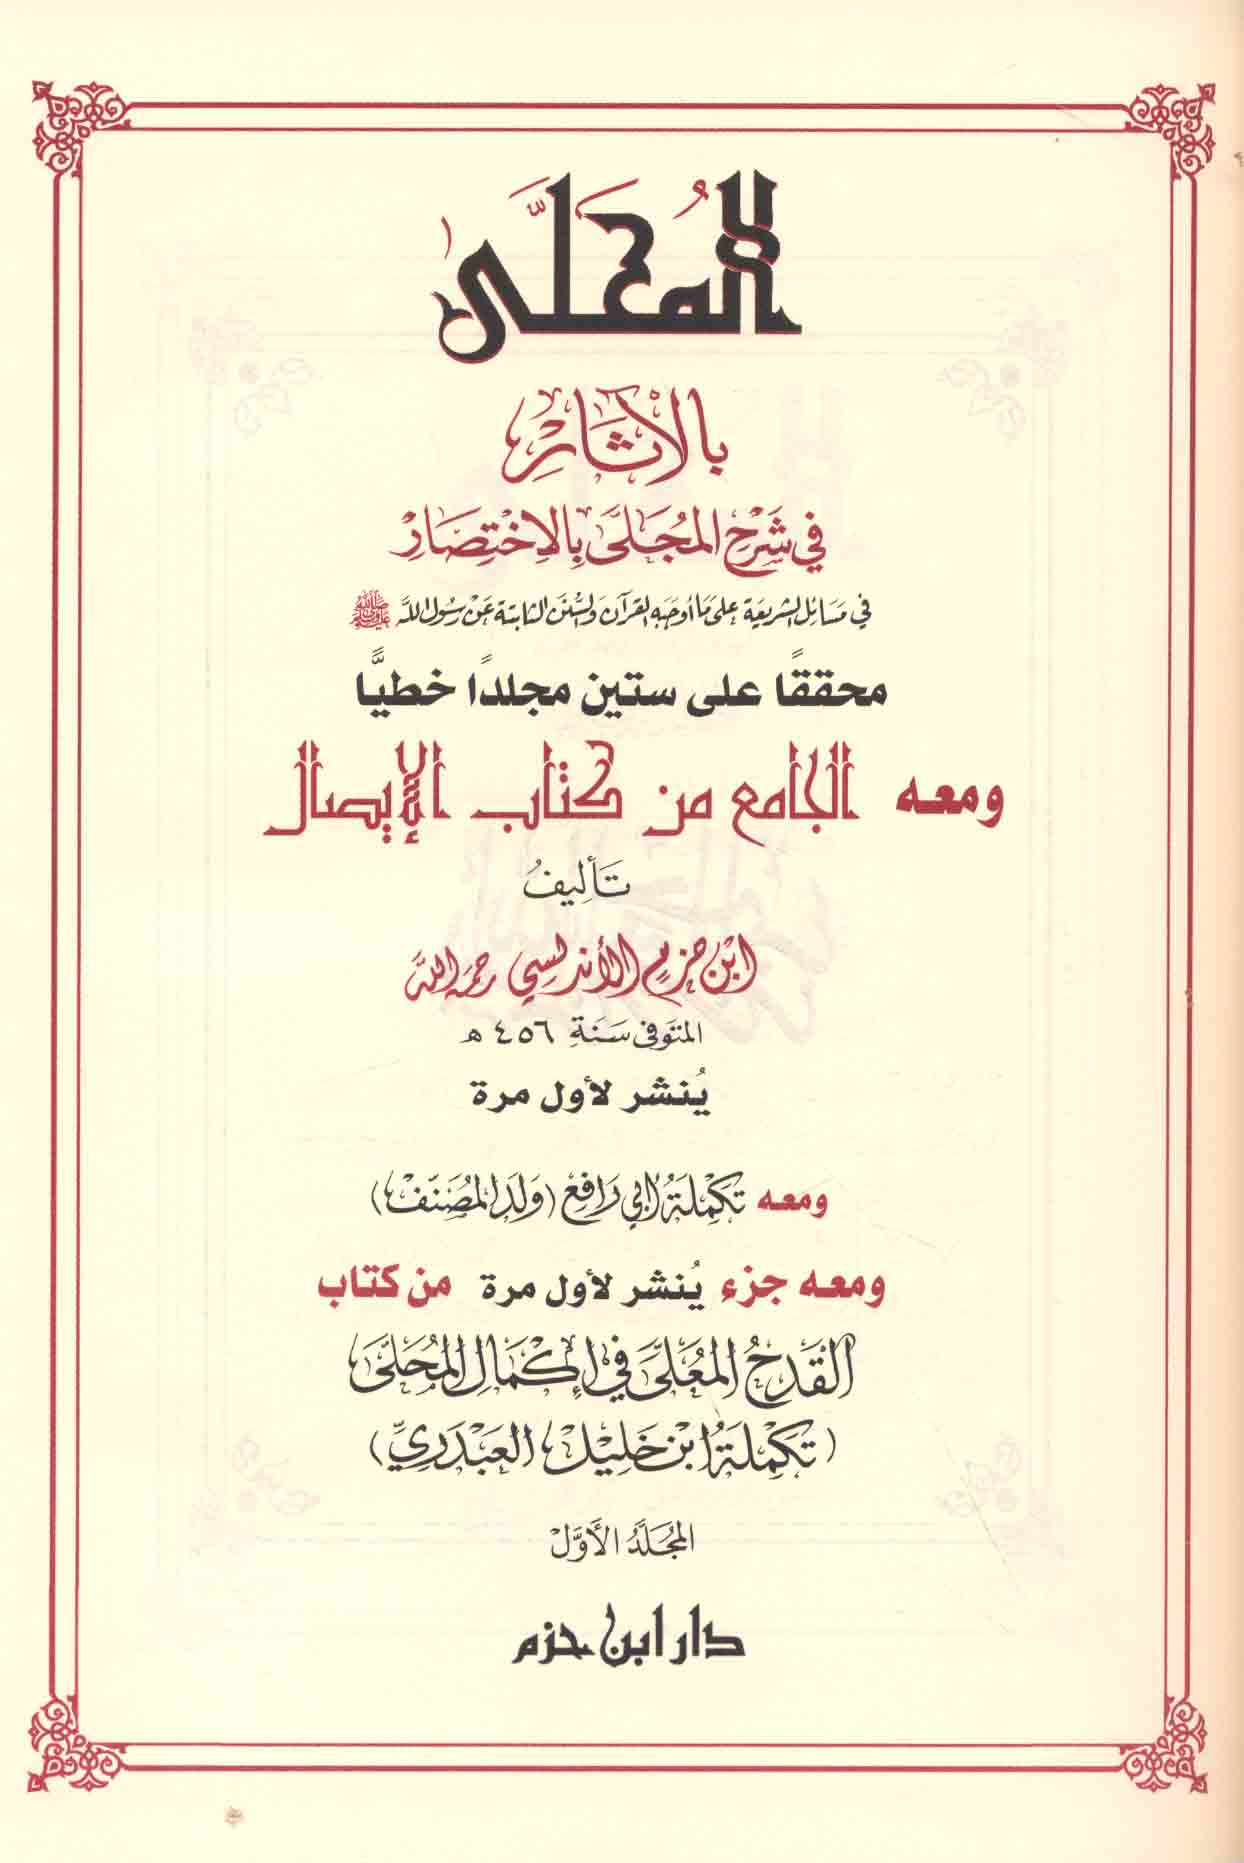 المُحَلَّى
بالآثَارِ
في شَرْحِ المُجَلَّى بِالاِخْتِصَارِ
في مَسَائل الشريعَة على مَا أوجَبه القرآن والسُّنَن الثابتة عَنْ رسُول اللَّه ﷺ
محققًا على ستين مجلدًا خطيًّا
ومعه الجامع من كتاب الإيصال
تَأليفُ
ابن حزم الأندلسي رحمه الله
المتَوفى سَنَةِ ٤٥٦ هـ
يُنشر لأول مرة
ومعه تَكْمِلَةُ أبي رَافِع (وَلَد المُصَنِّفْ)
ومعه جزء يُنشر لأول مرة من كتاب
القَدَحُ المُعَلَّى في إكْمَالِ المُحَلَّى
(تَكْمِلَةُ ابْن خَليْل العَبْدَرِيِّ)
المُجَلَّدُ الأَوَّل
دار ابن حزم